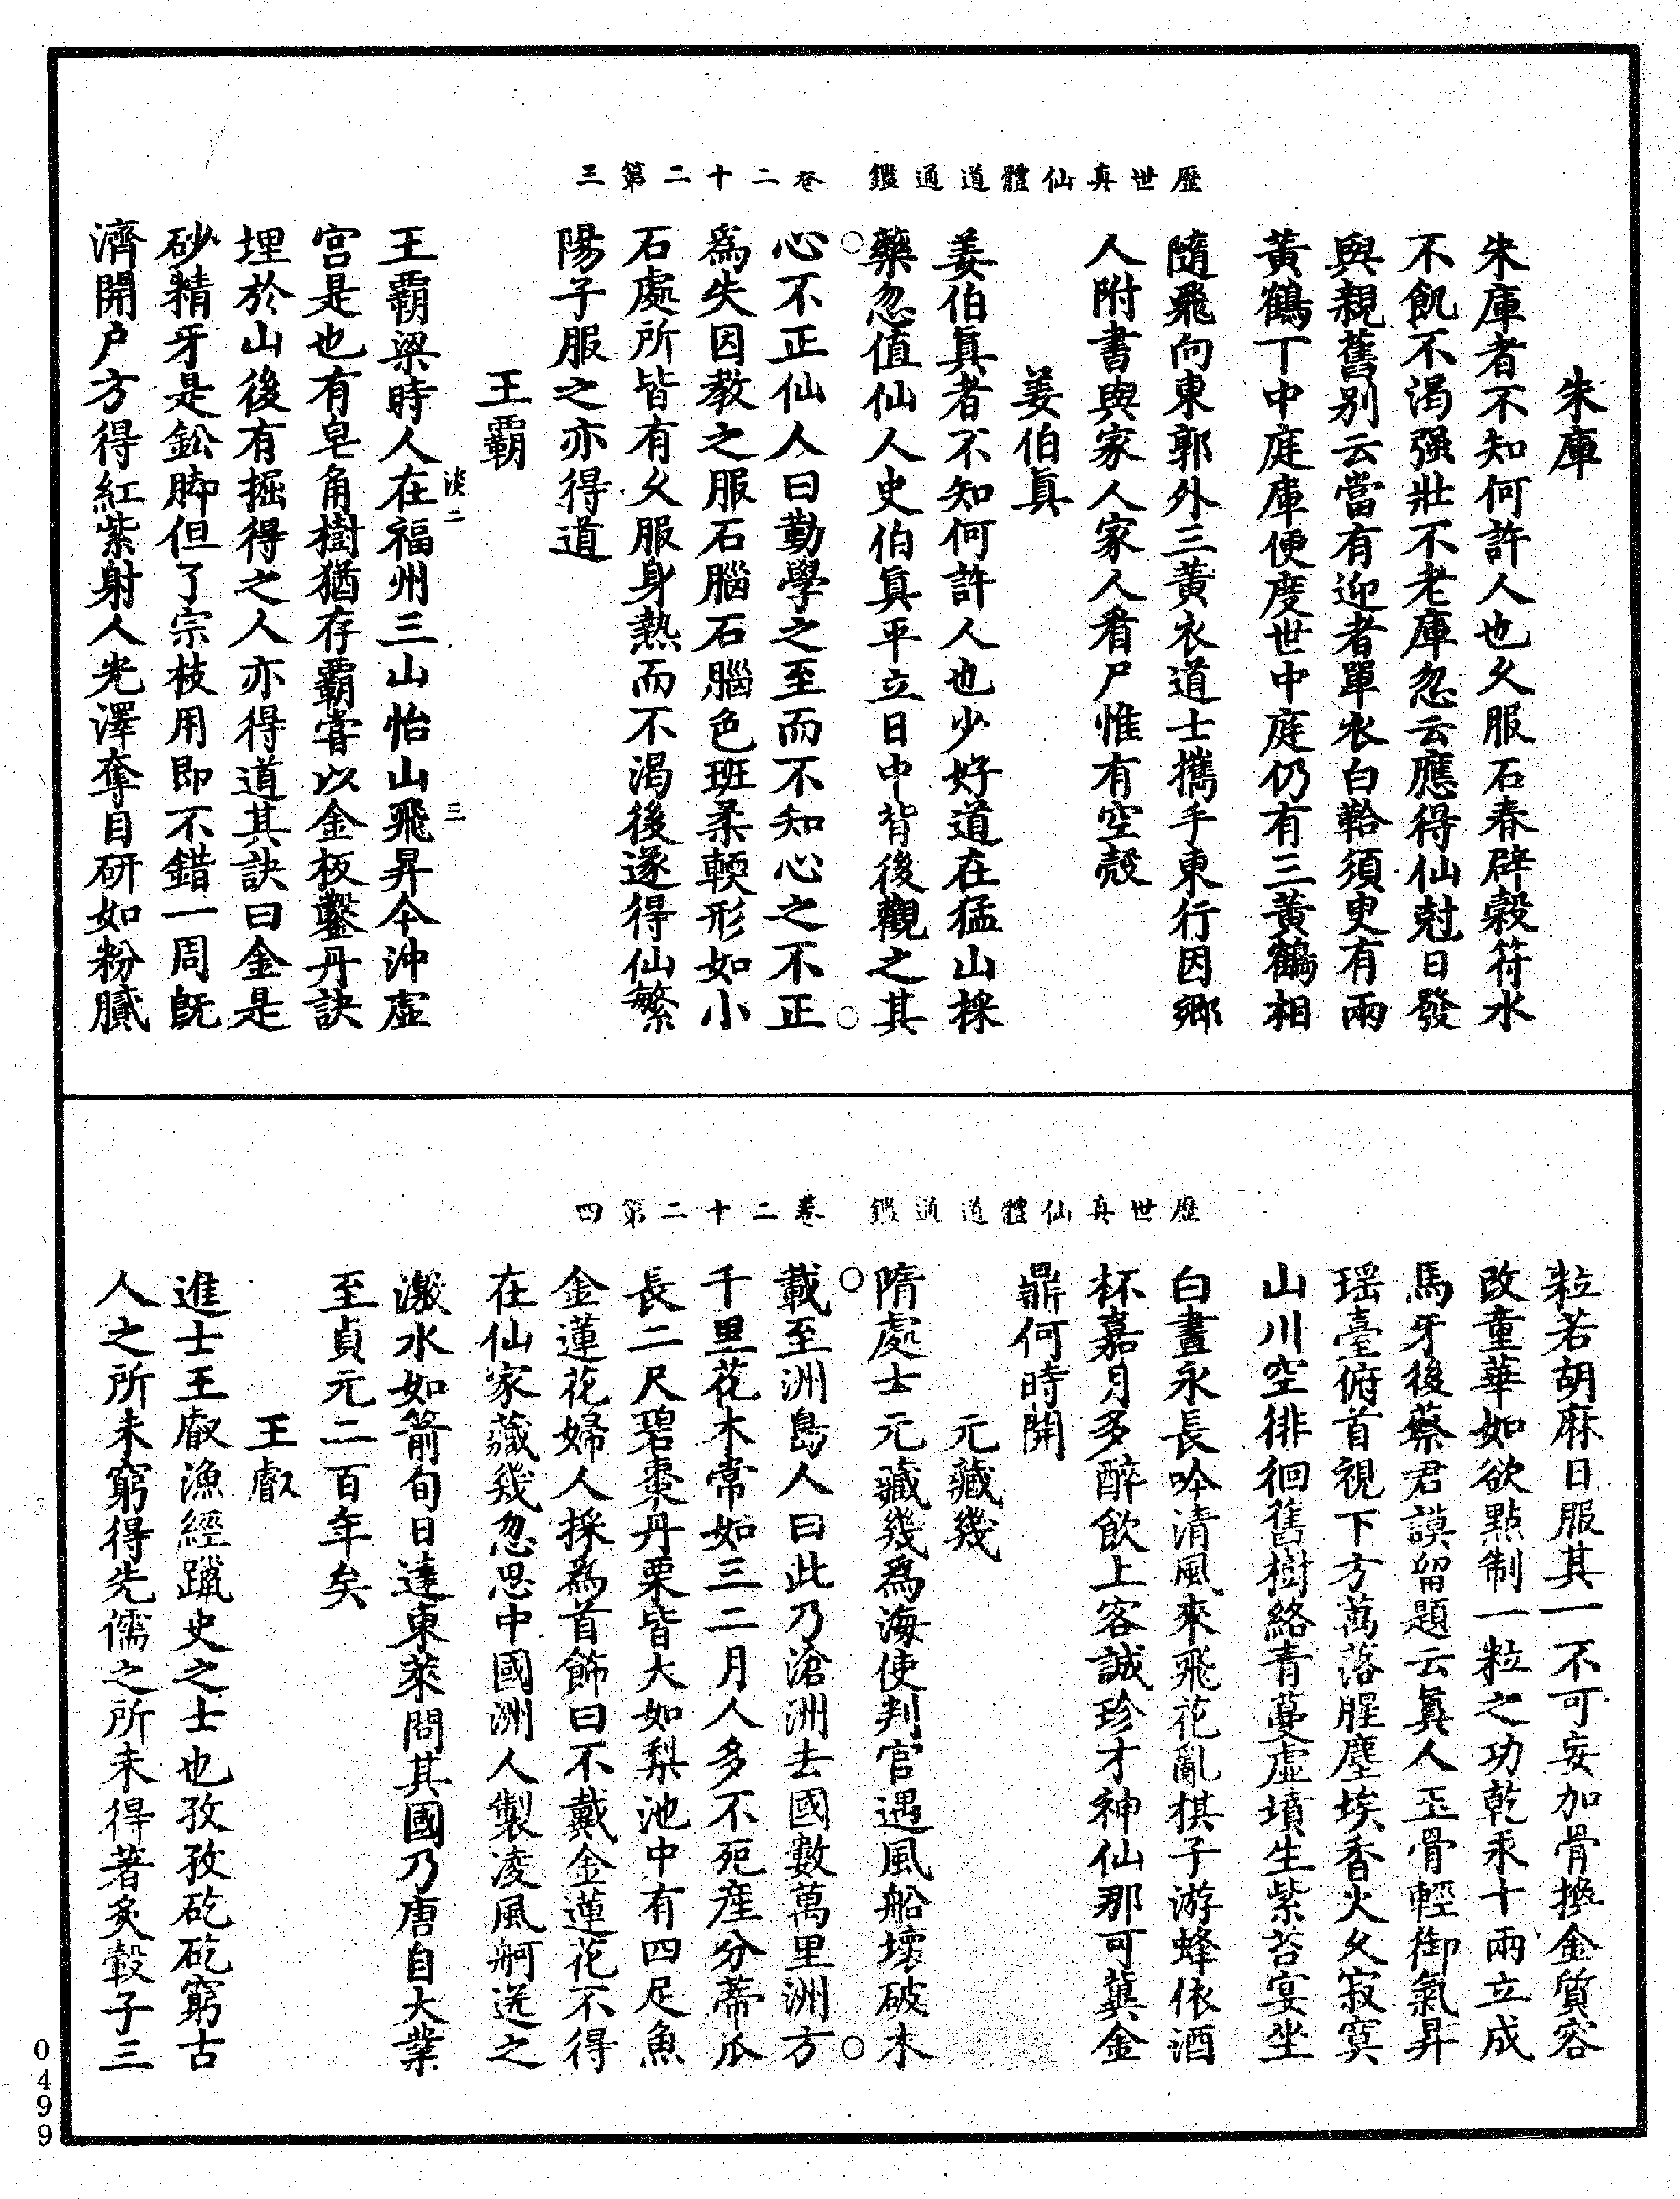 歷世真仙體道通鑑 卷二十二第三
朱庫
朱庫者不知何許人也久服石春辟穀符水
不飢不渴强壯不老庫忽云應得仙尅日發
與親舊别云當有迎者單衣白鞈須臾有兩
黃鶴丁中庭庫便度世中庭仍有三黃鶴相
隨飛向東郭外三黃衣道士攜手東行因鄉
人附書與家人家人看尸惟有空殼
姜伯真
姜伯真者不知何許人也少好道在猛山採
藥忽值仙人史伯真平立日中背後觀之其
心不正仙人曰勤學之至而不知心之不正
爲失因教之服石腦石腦色班柔輭形如小
石處所皆有久服身熱而不渴後遂得仙繁
陽子服之亦得道
王霸
王霸梁時人在福州三山怡山飛昇今沖虛
淡二 三
宮是也有皂角樹猶存霸嘗以金板鏨丹訣
埋於山後有掘得之人亦得道其訣曰金是
砂精牙是鈆脚但了宗枝用即不錯一周旣
濟開戶方得紅紫射人光澤奪目研如粉膩
歷世真仙體道通鑑 卷二十二第四
粒若胡麻日服其一不可妄加骨換金質容
改童華如欲點制一粒之功乾汞十兩立成
馬牙後蔡君謨留題云真人玉骨輕御氣昇
瑶臺俯首視下方萬落腥塵埃香火久寂寞
山川空徘徊舊樹絡青蔓虛墳生紫苔宴坐
白晝永長吟清風來飛花亂棋子游蜂依酒
杯嘉月多醉飲上客誠珍才神仙那可冀金
鼎何時開
元藏幾
隋處士元藏幾爲海使判官遇風船壞破木
載至洲島人曰此乃滄洲去國數萬里洲方
千里花木常如三二月人多不死產分蒂瓜
長二尺碧棗丹栗皆大如梨池中有四足魚
金蓮花婦人採爲首飾曰不戴金蓮花不得
在仙家藏幾忽思中國洲人製凌風舸送之
激水如箭旬日達東萊問其國乃唐自大業
至貞元二百年矣
王叡
進士王叡漁經躐史之士也孜孜矻矻窮古
人之所未窮得先儒之所未得著炙轂子三
0499